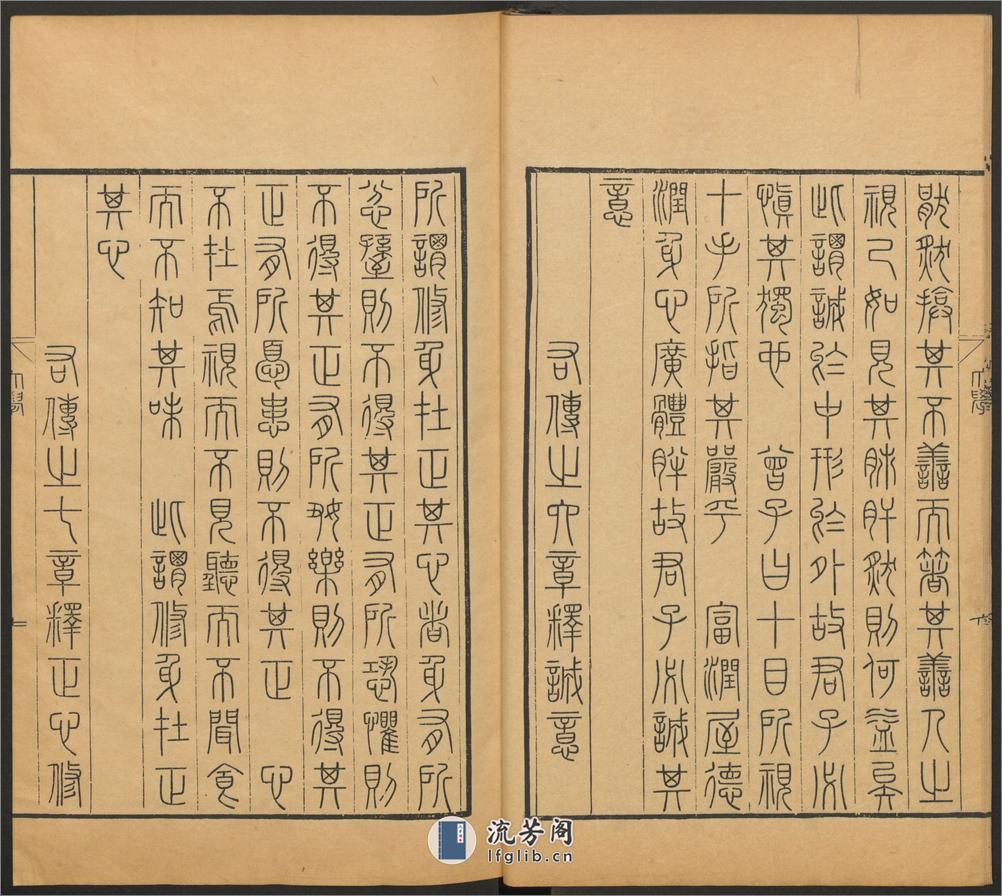 厭然揜其不善而著其善人之
視己如見其肺肝然則何益矣
此謂誠於中形於外故君子必
慎其獨也　曾子曰十目所視
十手所指其嚴乎　富潤屋德
潤身心廣體胖故君子必誠其
意
右傳之六章釋誠意
所謂修身在正其心者身有所
忿懥則不得其正有所恐懼則
不得其正有所好樂則不得其
正有所憂患則不得其正　心
不在焉視而不見聽而不聞食
而不知其味　此謂修身在正
其心
右傳之七章釋正心修
大學
流芳阁
lfglib.cn